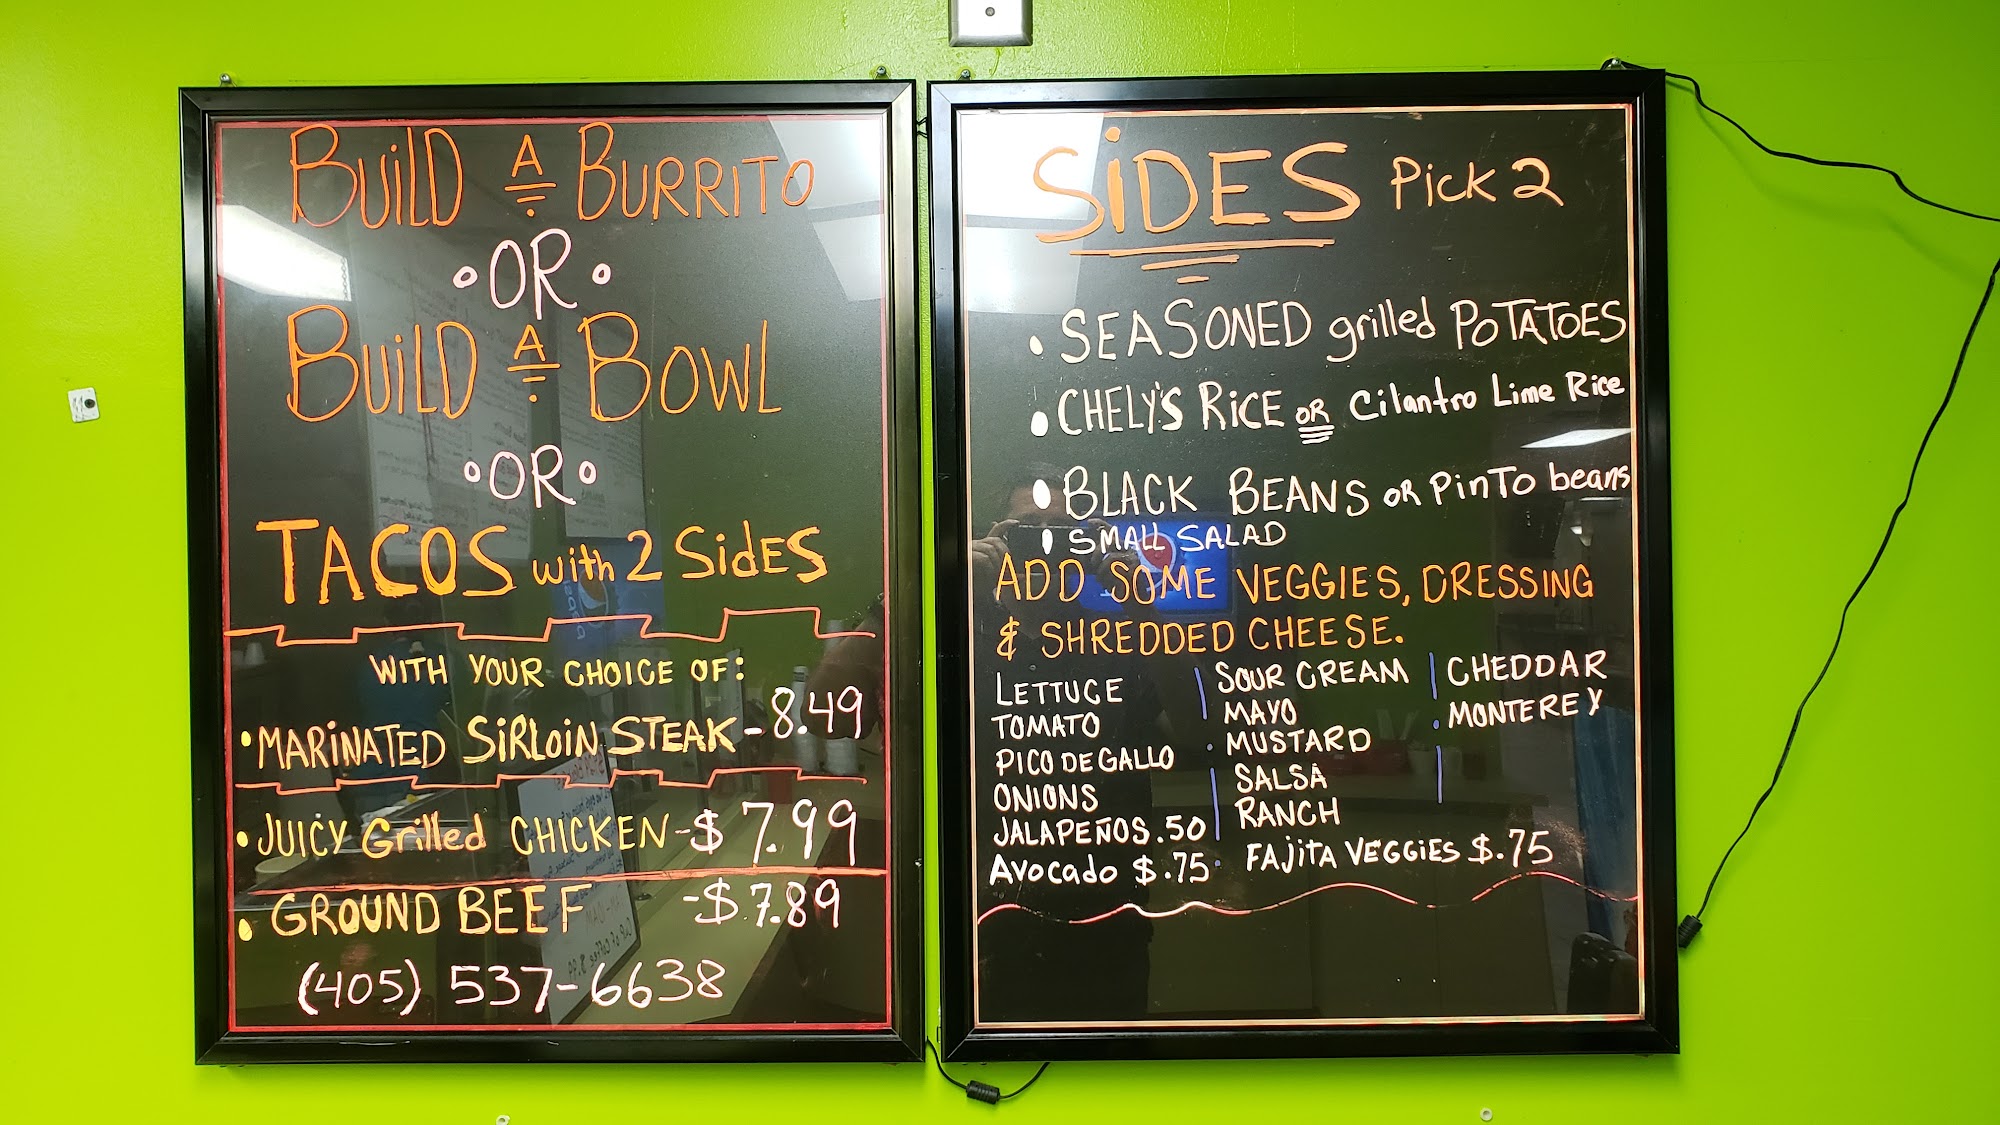 BUILD A BURRITO
•OR•
BUILD A BOWL
•OR•
TACOS with 2 SidES
WITH YOUR CHOICE OF:
•MARINATED SIRLOIN STEAK - 8.49
•JUICY Grilled CHICKEN - $7.99
•GROUND BEEF - $7.89
(405) 537-6638
SiDES Pick 2
•SEASONED grilled POTATOES
•CHELY'S RICE OR Cilantro Lime Rice
•BLACK BEANS OR PINTO beans
•SMALL SALAD
ADD SOME VEGGIES, DRESSING
& SHREDDED CHEESE.
LETTUCE
TOMATO
PICO DE GALLO
ONIONS
JALAPEÑOS .50
Avocado $.75
SOUR CREAM
MAYO
MUSTARD
SALSA
RANCH
FAJITA VEGGIES $.75
CHEDDAR
MONTEREY